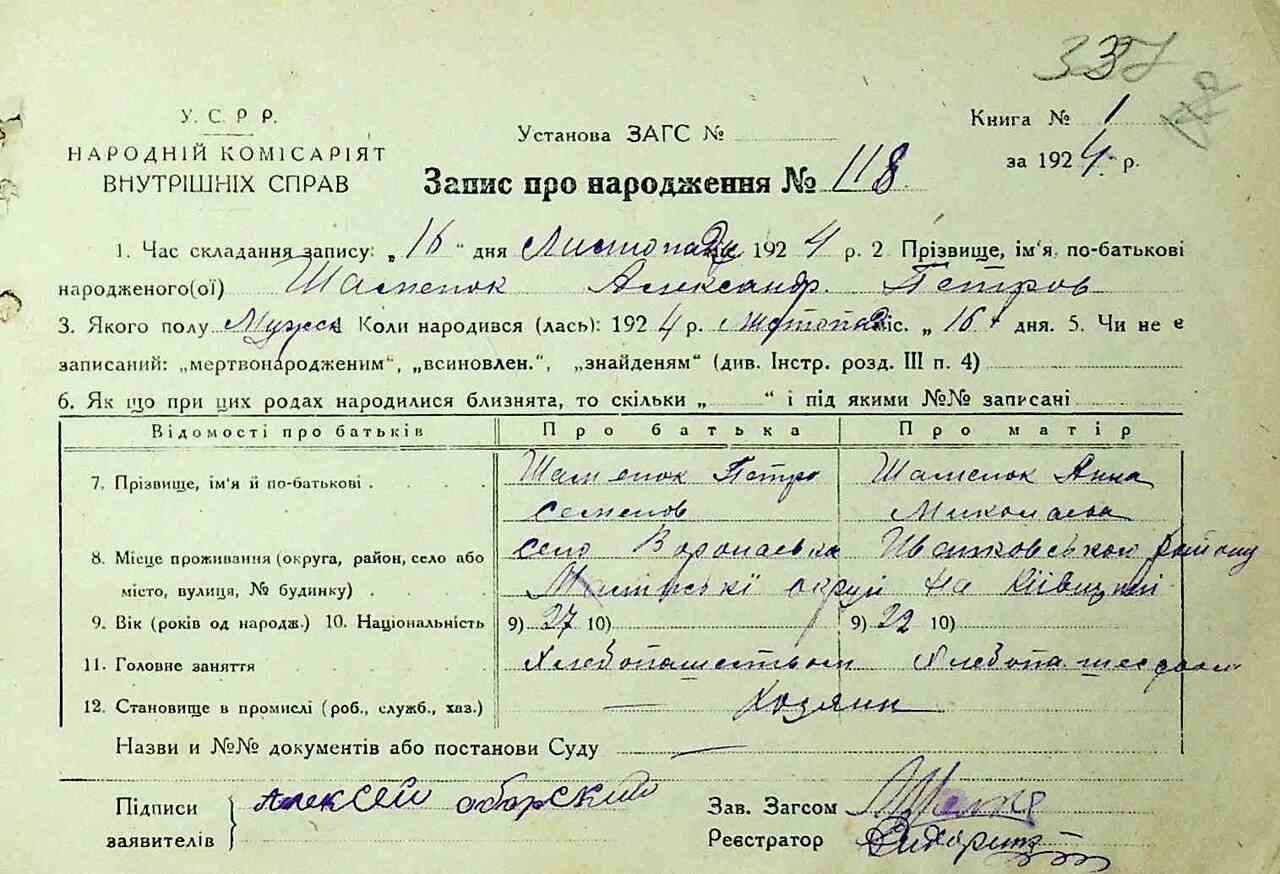 337
У. С. Р. Р.
НАРОДНІЙ КОМІСАРІЯТ
ВНУТРІШНІХ СПРАВ
Установа ЗАГС №
Книга № 1
за 1924 р.
Запис про народження № 118.
1. Час складання запису: „16“ дня Листопада 1924 р. 2 Прізвище, ім'я, по-батькові
народженого(ої) Шаменок Александр Петров
3. Якого полу Мужск Коли народився (лась): 1924 р. Листопад міс. „16“ дня. 5. Чи не є
записаний: „мертвонародженим“, „всиновлен.“, „знайденям“ (див. Інстр. розд. III п. 4)
6. Як що при цих родах народилися близнята, то скільки „ “ і під якими №№ записані
Відомості про батьків Про батька Про матір
7. Прізвище, ім'я й по-батькові . Шаменок Петро Шаменок Анна
Семенов Миколаева
8. Місце проживання (округа, район, село або село Воропаевка району
місто, вулиця, № будинку) . округи на Київщині
9. Вік (років од народж.) 10. Національність 9) 27 10) 9) 22 10)
11. Головне заняття Хлебопашеством Хлебопашеством
12. Становище в промислі (роб., служб., хаз.) — Хозяин
Назви и №№ документів або постанови Суду —
Підписи
заявителів
Алексей
Зав. Загсом
Реєстратор